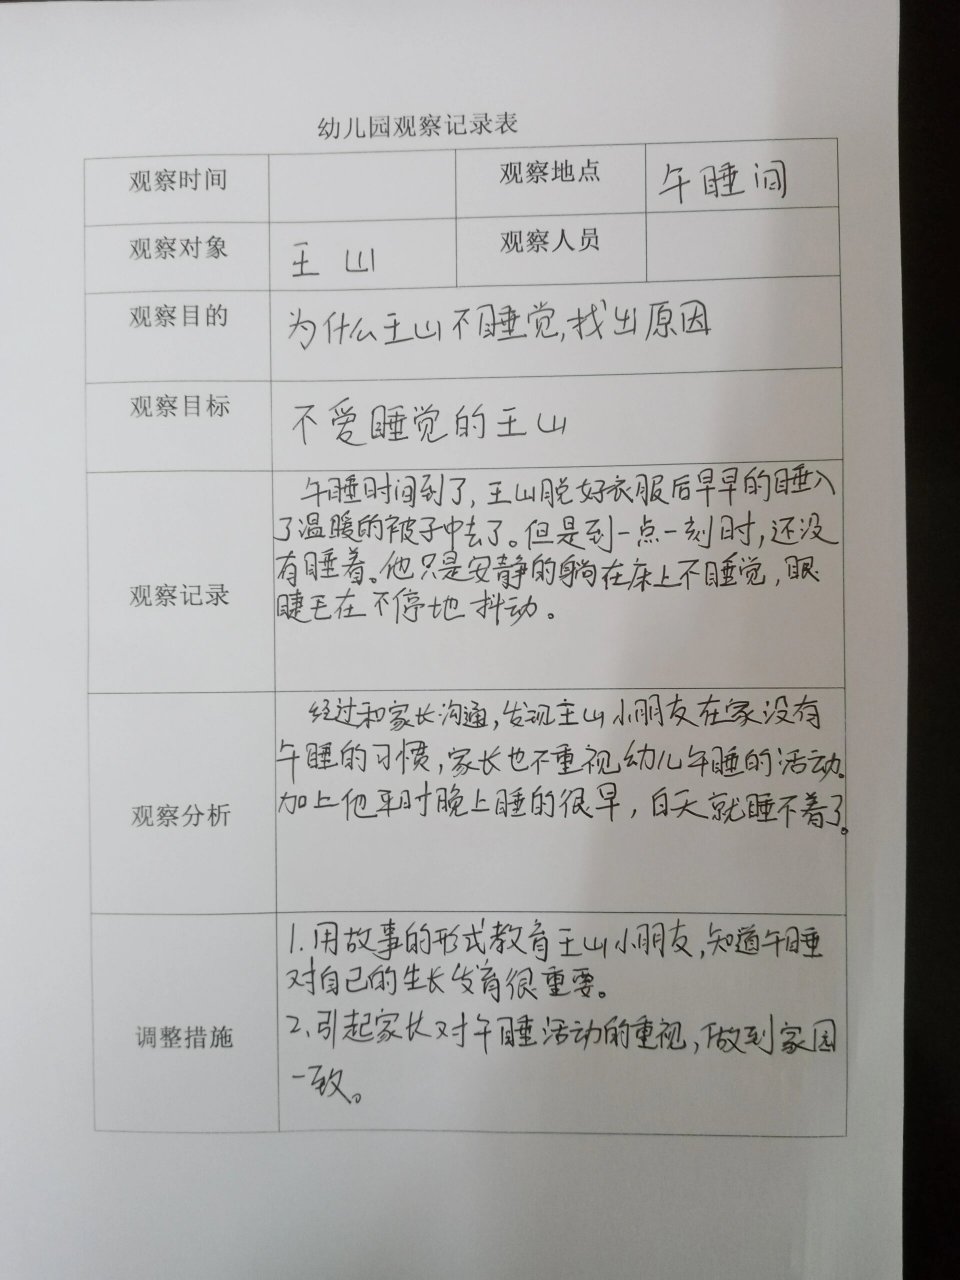 幼儿园观察记录表
观察时间 观察地点 午睡间
观察对象 王山 观察人员
观察目的 为什么王山不睡觉,找出原因
观察目标 不爱睡觉的王山
观察记录
午睡时间到了,王山脱好衣服后早早的睡入
了温暖的被子中去了。但是到一点一刻时,还没
有睡着。他只是安静的躺在床上不睡觉,眼
睫毛在不停地抖动。
观察分析
经过和家长沟通,发现王山小朋友在家没有
午睡的习惯,家长也不重视幼儿午睡的活动。
加上他平时晚上睡的很早,白天就睡不着了。
调整措施
1.用故事的形式教育王山小朋友,知道午睡
对自己的生长发育很重要。
2.引起家长对午睡活动的重视,做到家园
一致。